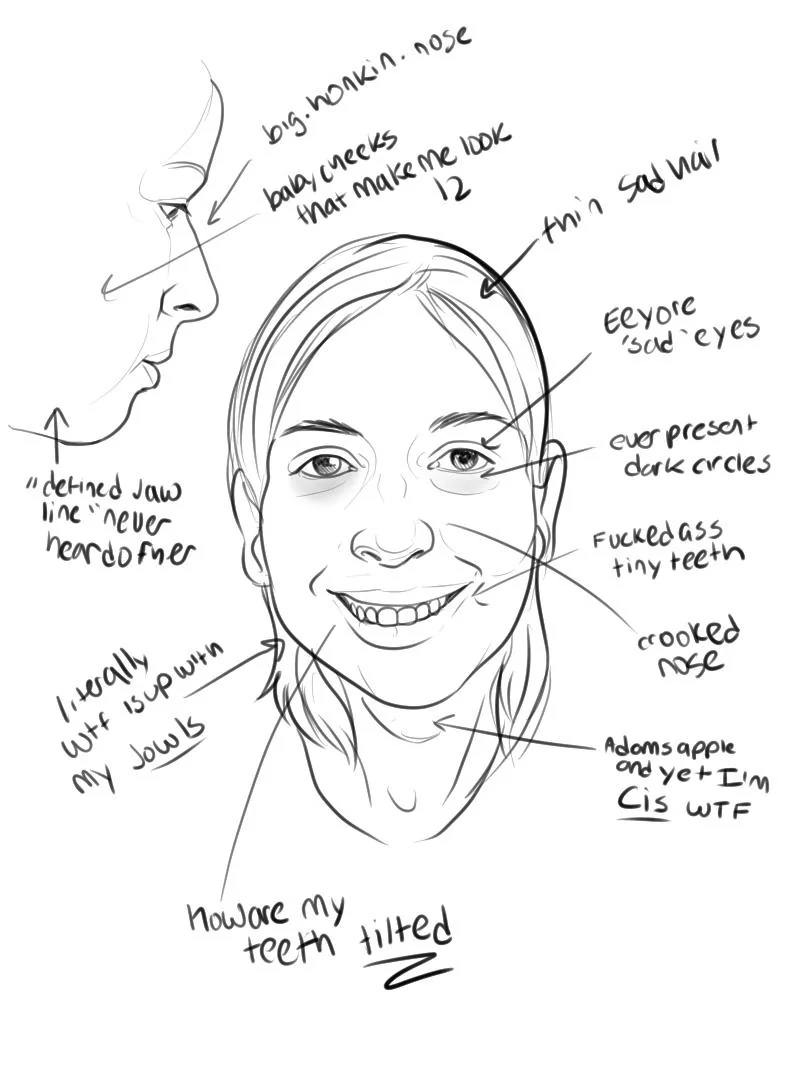 big. honkin. nose
baby cheeks
that make me look
12
thin sad hair
Eeyore
'sad' eyes
ever present
dark circles
"defined jaw
line" never
heard of her
Fucked ass
tiny teeth
crooked
nose
literally
wtf is up with
my jowls
Adams apple
and yet I'm
Cis WTF
how are my
teeth tilted